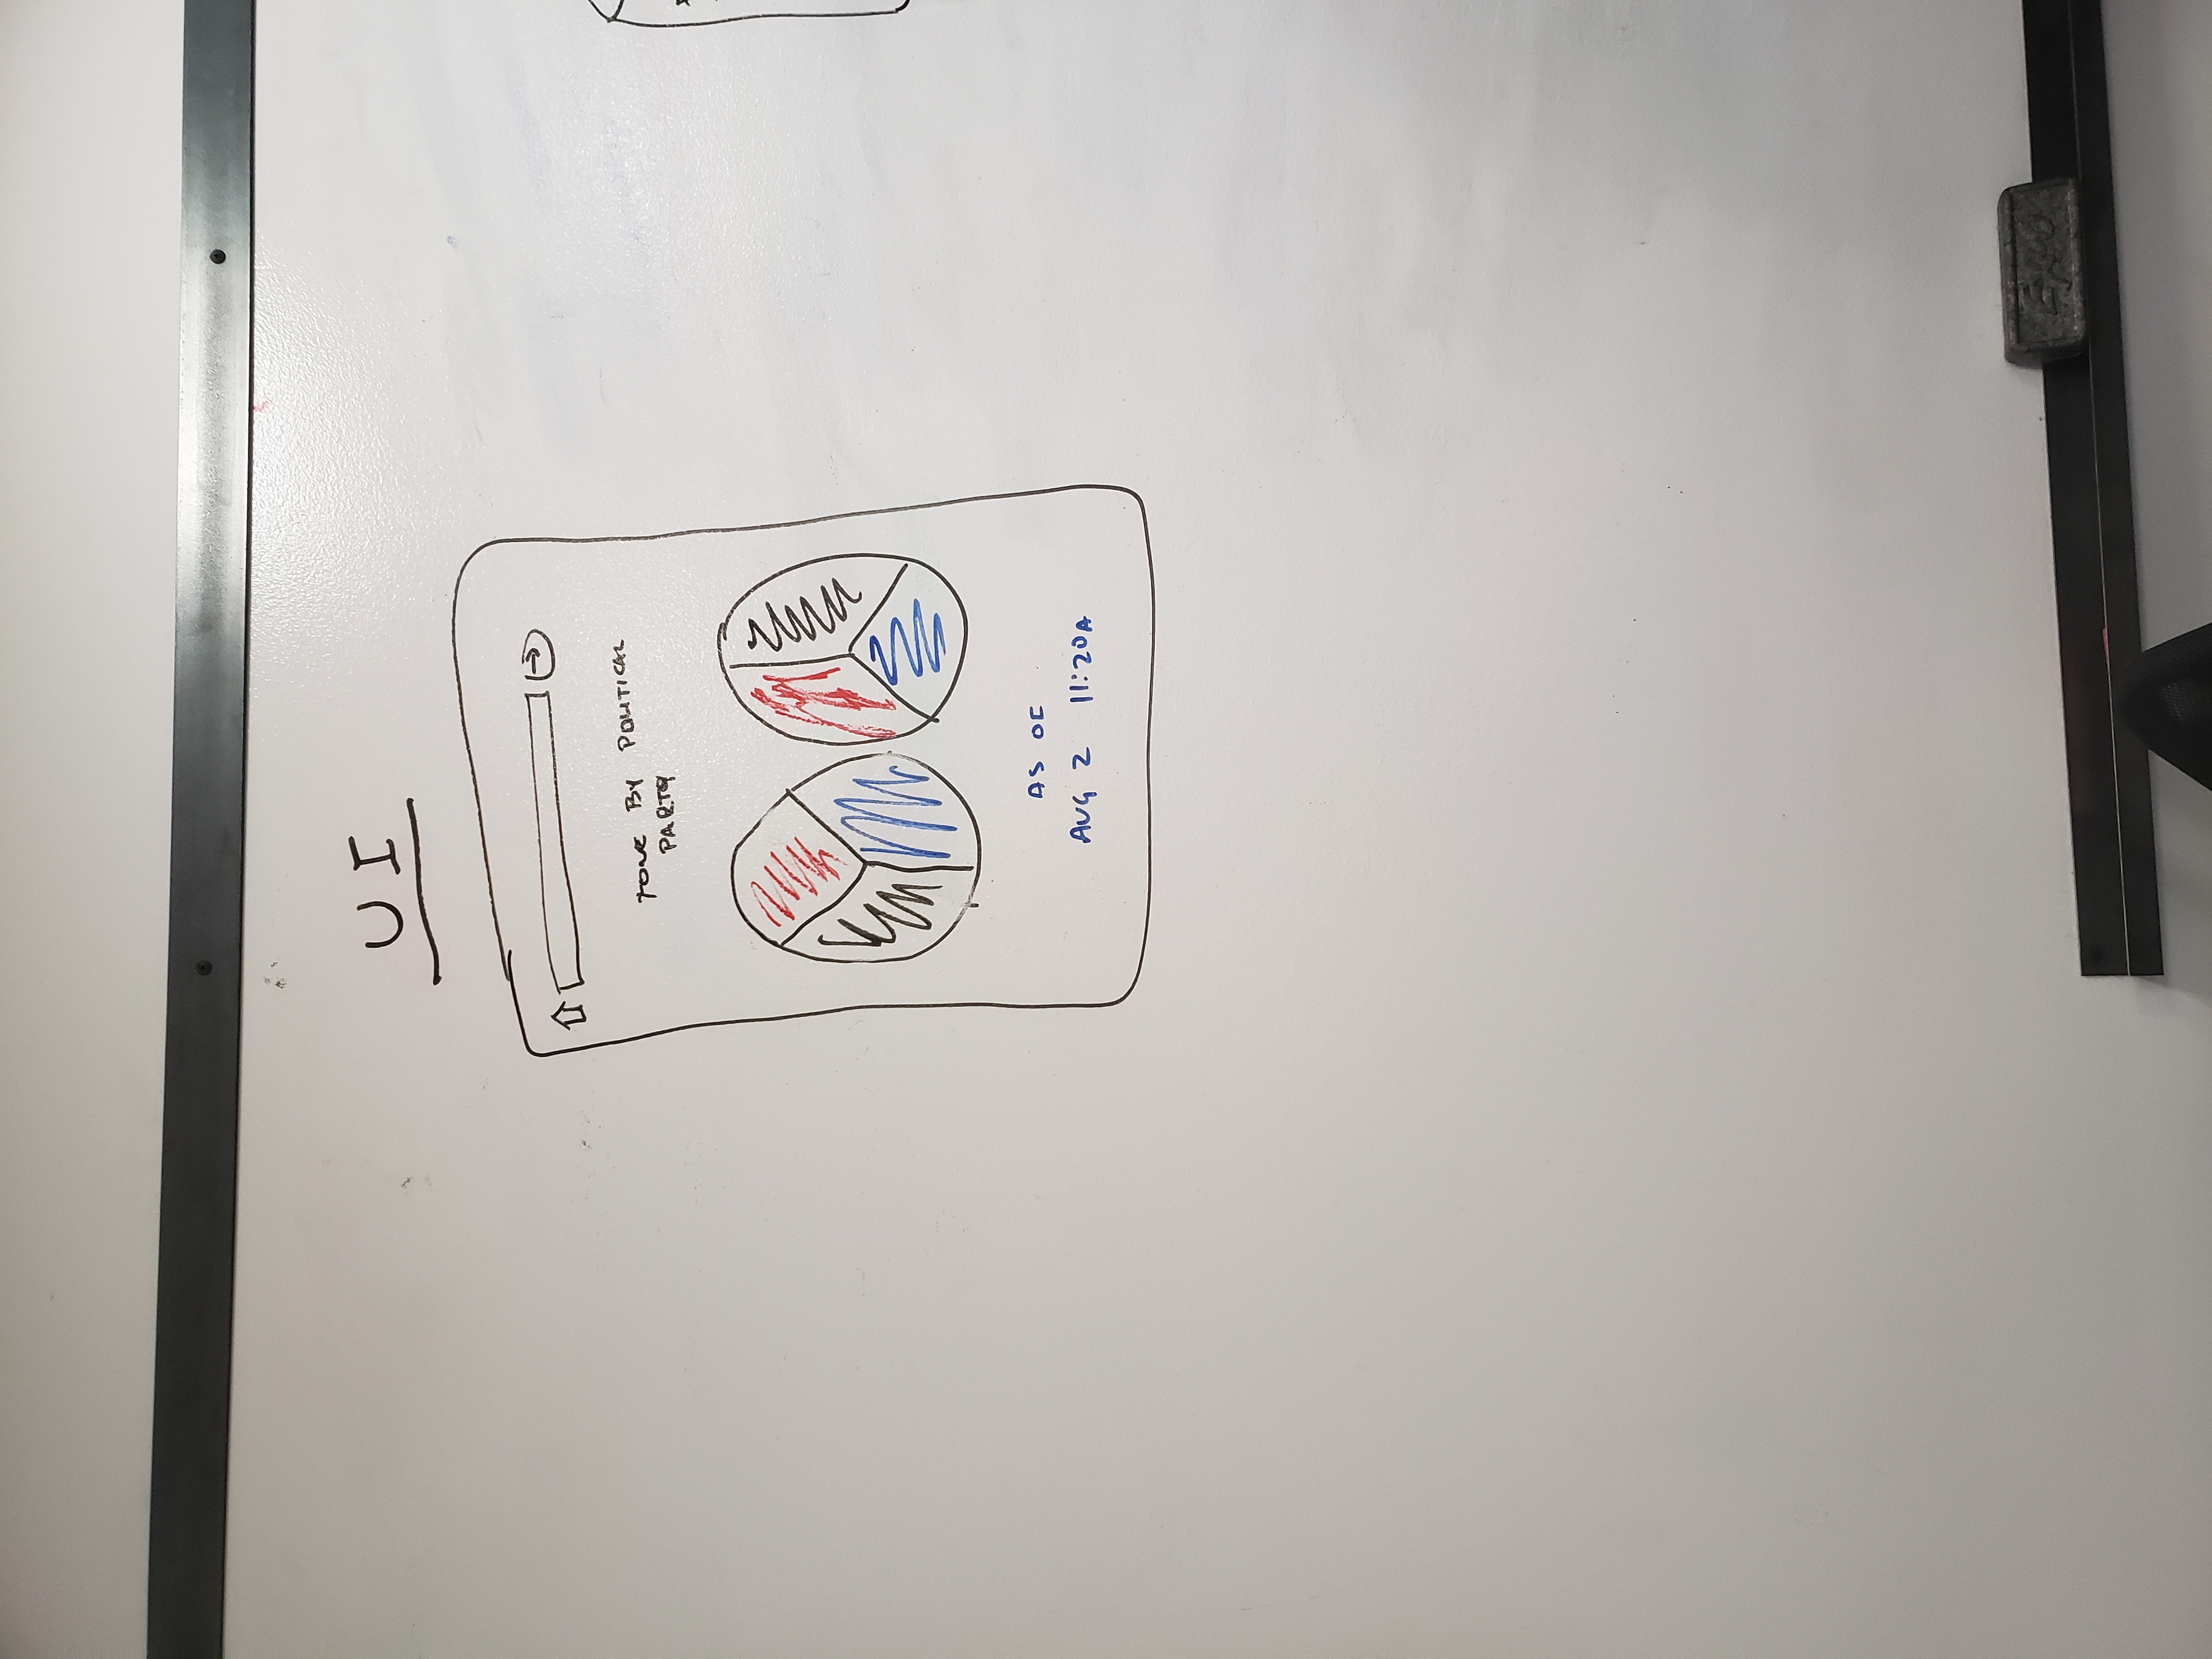 UI
TONE BY POLITICAL
PARTY
AS OF
AUG 2 11:20A
EXPO